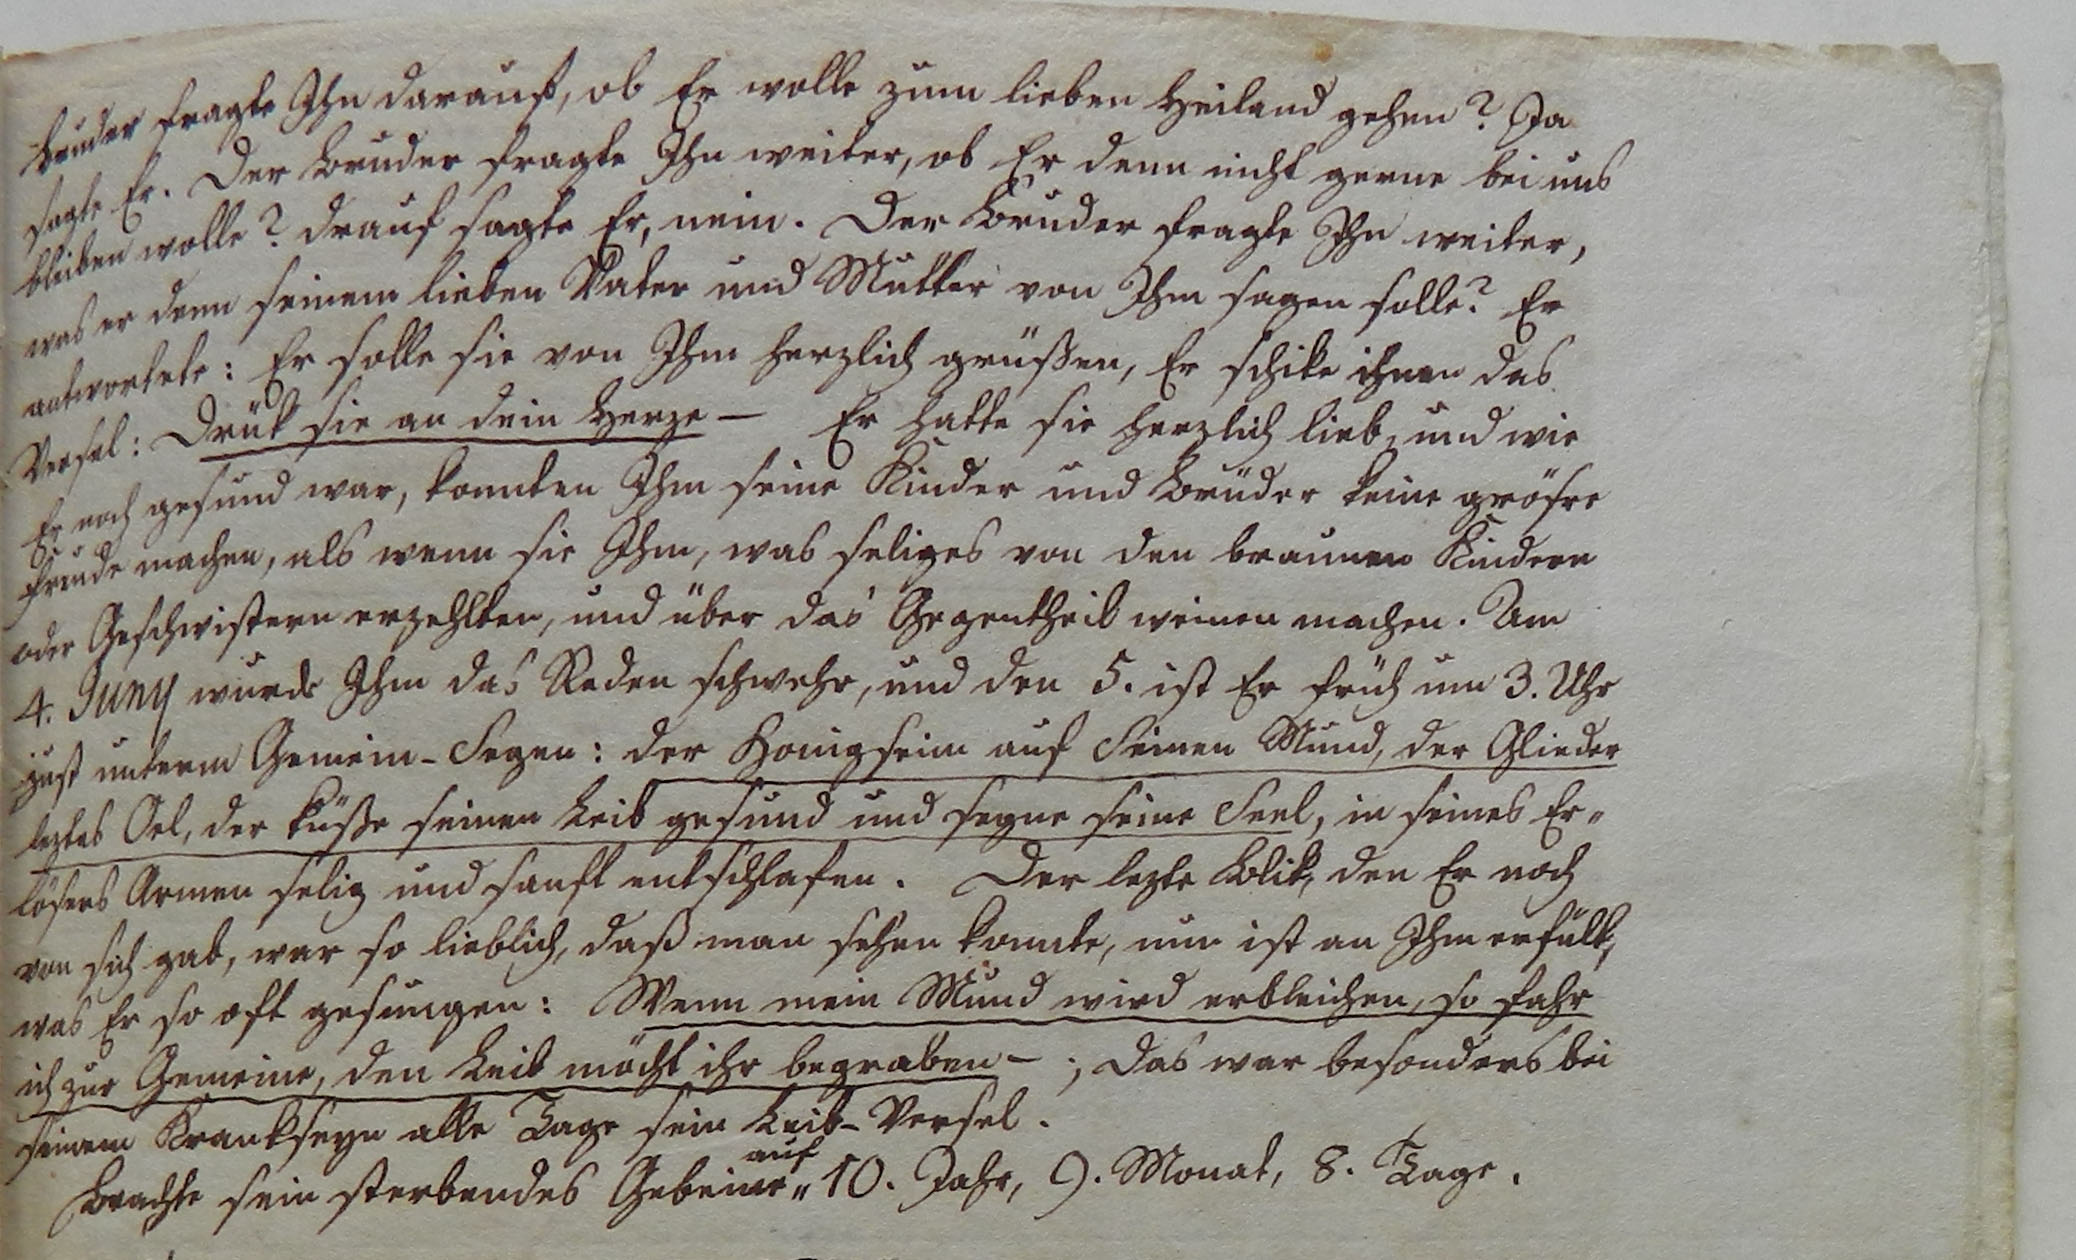 Bruder fragte Ihn darauf, ob Er wolle zum lieben Heiland gehen? Ja
sagte Er. Der Bruder fragte Ihn weiter, ob Er denn nicht gerne bei uns
bleiben wolle? drauf sagte Er, nein. Der Bruder fragte Ihn weiter,
was er denn seinem lieben Vater und Mutter von Ihm sagen solle? Er
antwortete: Er solle sie von Ihm herzlich grüßen, Er schike ihnen das
Versel: Drük sie an dein Herze — Er hatte sie herzlich lieb, und wie
Er noch gesund war, konnten Ihm seine Kinder und Brüder keine größre
Freude machen, als wenn sie Ihm, was seliges von den braunen Kindern
oder Geschwistern erzehlten, und über das Gegentheil weinen machen. Am
4. Juny wurde Ihm das Reden schwehr, und den 5. ist Er früh um 3. Uhr
just unterm Gemein-Segen: der Honigseim auf Seinen Mund, der Glieder
leztes Oel, der küße seinen Leib gesund und segne seine Seel, in seines Er-
lösers Armen selig und sanft entschlafen. Der lezte Blik, den Er noch
von sich gab, war so lieblich, daß man sehen konnte, nun ist an Ihm erfült,
was Er so oft gesungen: Wenn mein Mund wird erbleichen, so fahr
ich zur Gemeine, den Leib möcht ihr begraben — ; das war besonders bei
seinem Krankseyn alle Tage sein Leib-Versel.
Brachte sein sterbendes Gebeine auf 10. Jahr, 9. Monat, 8. Tage.